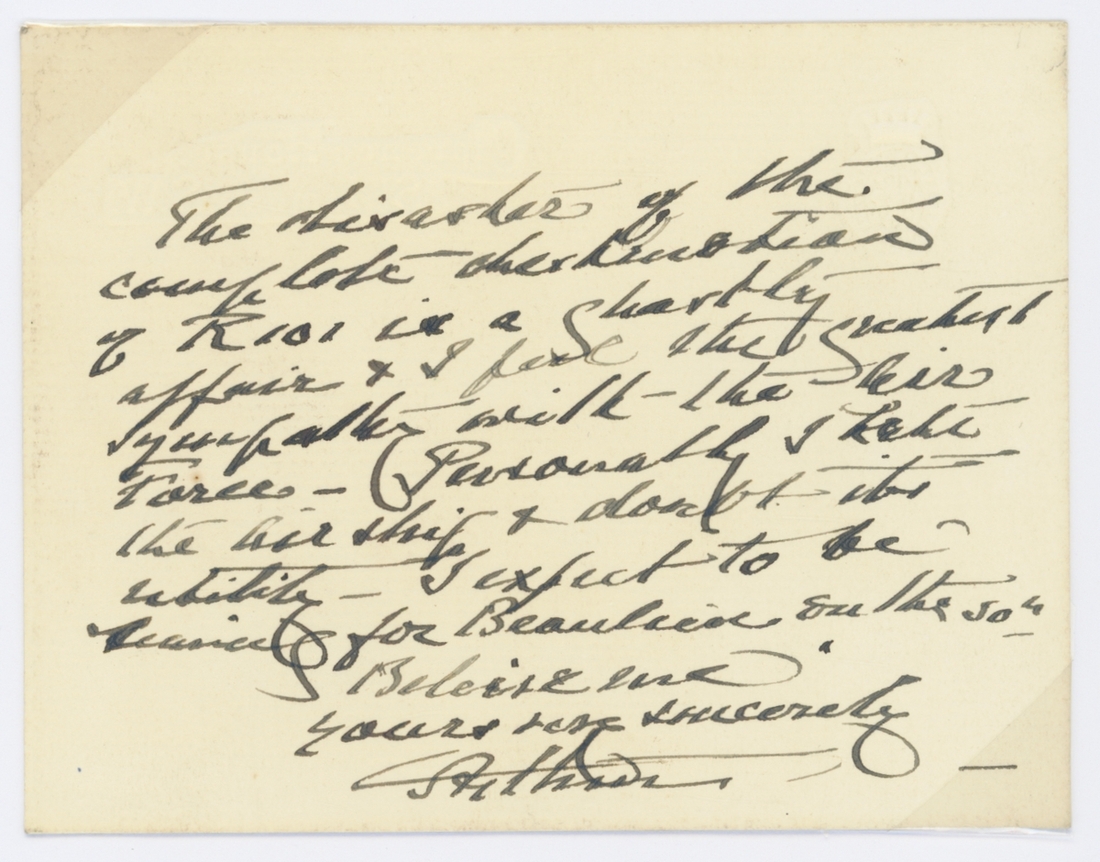 The disaster of the
complete destruction
of R101 is a ghastly
affair & I feel the greatest
sympathy with the Air
Force – (Personally I hate
the Air ship & doubt its
utility – I expect to be
leaving for Beaulieu on the 30th
Believe me
yours very sincerely
Arthur